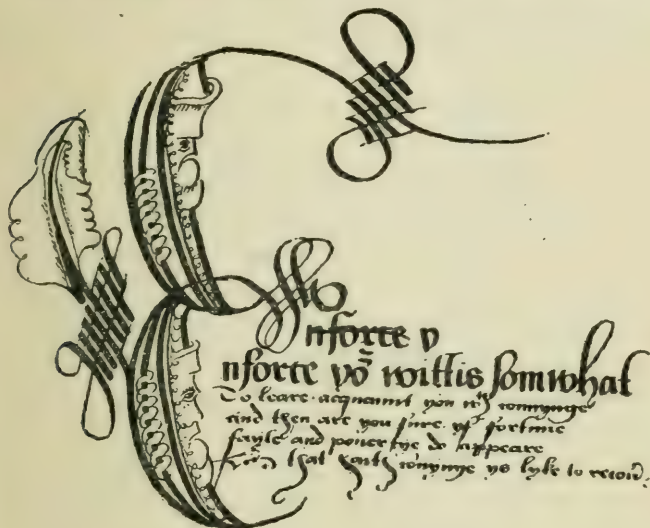 E
nforce y
nforce yõ wittis somwhat
To leare acquaunt you wth connynge
and then are you sure yf fortune
fayle and pouertye do appeare
that hath connynge ys lyke to